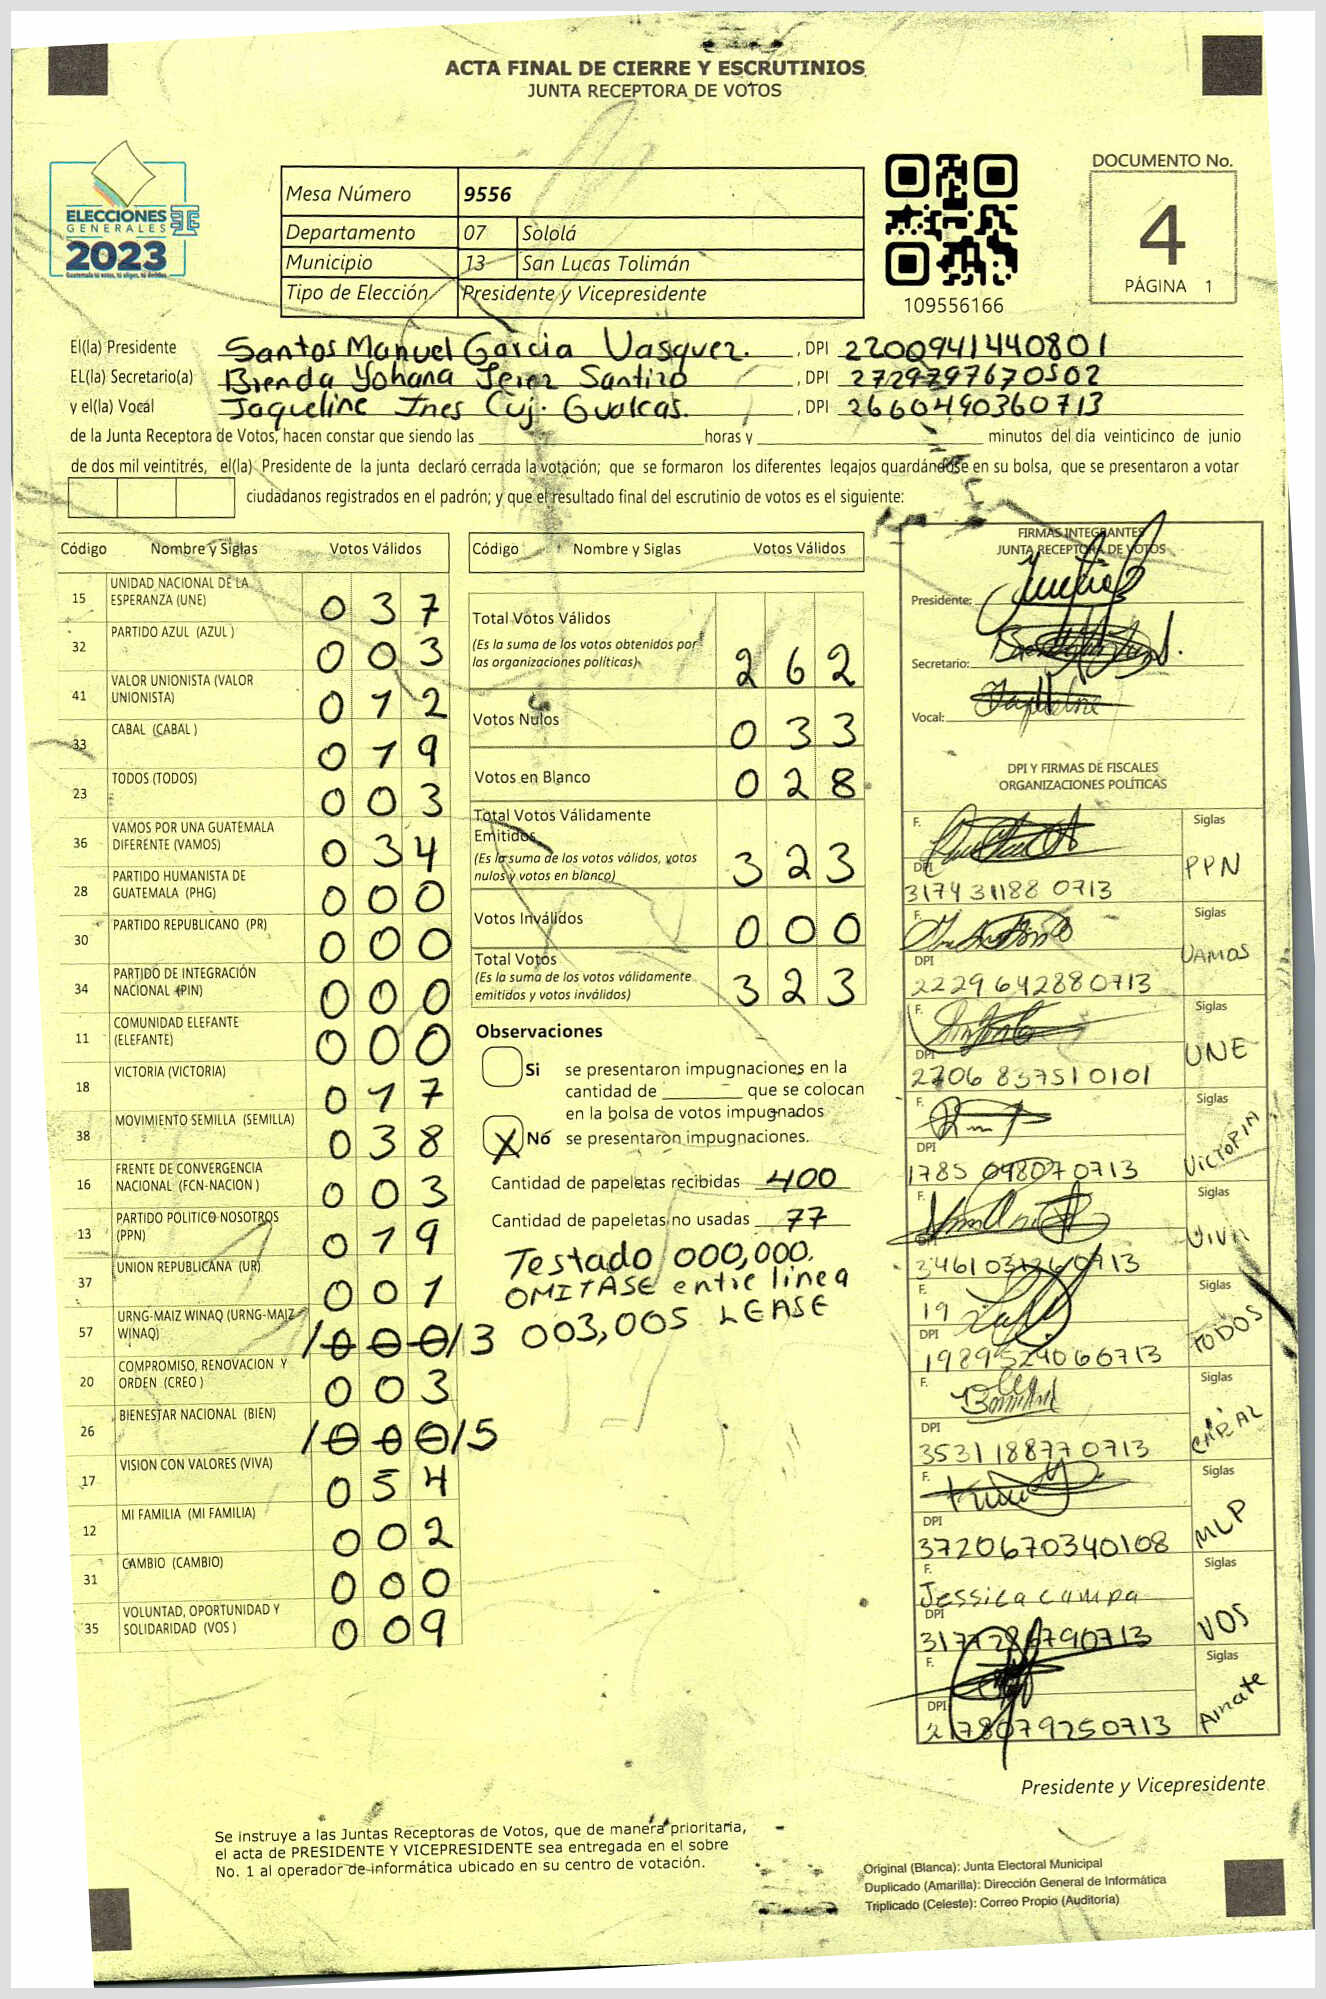 ACTA FINAL DE CIERRE Y ESCRUTINIOS
JUNTA RECEPTORA DE VOTOS
ELECCIONES
GENERALES
2023
Mesa Número 9556
Departamento 07 Sololá
Municipio 13 San Lucas Tolimán
Tipo de Elección Presidente y Vicepresidente
109556166
DOCUMENTO No.
4
PÁGINA 1
El(la) Presidente Santos Manuel Garcia Vasquez. , DPI 2200941440801
EL(la) Secretario(a) Brenda Yohana Perez Santizo , DPI 2729797670502
y el(la) Vocal Jaqueline Ines Cuj. Gualcas. , DPI 2660490360713
de la Junta Receptora de Votos, hacen constar que siendo las horas y minutos del día veinticinco de junio
de dos mil veintitrés, el(la) Presidente de la junta declaró cerrada la votación; que se formaron los diferentes legajos guardándose en su bolsa, que se presentaron a votar
ciudadanos registrados en el padrón; y que el resultado final del escrutinio de votos es el siguiente:
Código Nombre y Siglas Votos Válidos
15 UNIDAD NACIONAL DE LA ESPERANZA (UNE) 037
32 PARTIDO AZUL (AZUL ) 003
41 VALOR UNIONISTA (VALOR UNIONISTA) 012
33 CABAL (CABAL ) 019
23 TODOS (TODOS) 003
36 VAMOS POR UNA GUATEMALA DIFERENTE (VAMOS) 034
28 PARTIDO HUMANISTA DE GUATEMALA (PHG) 000
30 PARTIDO REPUBLICANO (PR) 000
34 PARTIDO DE INTEGRACIÓN NACIONAL (PIN) 000
11 COMUNIDAD ELEFANTE (ELEFANTE) 000
18 VICTORIA (VICTORIA) 017
38 MOVIMIENTO SEMILLA (SEMILLA) 038
16 FRENTE DE CONVERGENCIA NACIONAL (FCN-NACION ) 003
13 PARTIDO POLITICO NOSOTROS (PPN) 019
37 UNION REPUBLICANA (UR) 001
57 URNG-MAIZ WINAQ (URNG-MAIZ WINAQ) /000/3
20 COMPROMISO, RENOVACION Y ORDEN (CREO ) 003
26 BIENESTAR NACIONAL (BIEN) /000/5
17 VISION CON VALORES (VIVA) 054
12 MI FAMILIA (MI FAMILIA) 002
31 CAMBIO (CAMBIO) 000
35 VOLUNTAD, OPORTUNIDAD Y SOLIDARIDAD (VOS ) 009
Código Nombre y Siglas Votos Válidos
Total Votos Válidos
(Es la suma de los votos obtenidos por
las organizaciones políticas) 262
Votos Nulos 033
Votos en Blanco 028
Total Votos Válidamente
Emitidos
(Es la suma de los votos válidos, votos
nulos y votos en blanco) 323
Votos Inválidos 000
Total Votos
(Es la suma de los votos válidamente
emitidos y votos inválidos) 323
Observaciones
Si se presentaron impugnaciones en la
cantidad de que se colocan
en la bolsa de votos impugnados
X No se presentaron impugnaciones.
Cantidad de papeletas recibidas 400
Cantidad de papeletas no usadas 77
Testado 000,000.
OMITASE entre linea
003,005 LEASE
FIRMAS INTEGRANTES
JUNTA RECEPTORA DE VOTOS
Presidente:
Secretario:
Vocal:
DPI Y FIRMAS DE FISCALES
ORGANIZACIONES POLÍTICAS
F. Siglas
DPI PPN
3174 31188 0713
F. Siglas
DPI VAMOS
2229642880713
F. Siglas
DPI UNE
2706 83751 0101
F. Siglas
DPI VICTORIA
1785 098070713
F. Siglas
DPI VIVA
F. Siglas
19
DPI TODOS
F. Siglas
DPI CABAL
3531188770713
F. Siglas
DPI MLP
3720670340108
F. Siglas
Jessica
DPI VOS
F. Siglas
DPI Amate
2178079250713
Presidente y Vicepresidente
Se instruye a las Juntas Receptoras de Votos, que de manera prioritaria,
el acta de PRESIDENTE Y VICEPRESIDENTE sea entregada en el sobre
No. 1 al operador de informática ubicado en su centro de votación.
Original (Blanca): Junta Electoral Municipal
Duplicado (Amarilla): Dirección General de Informática
Triplicado (Celeste): Correo Propio (Auditoría)